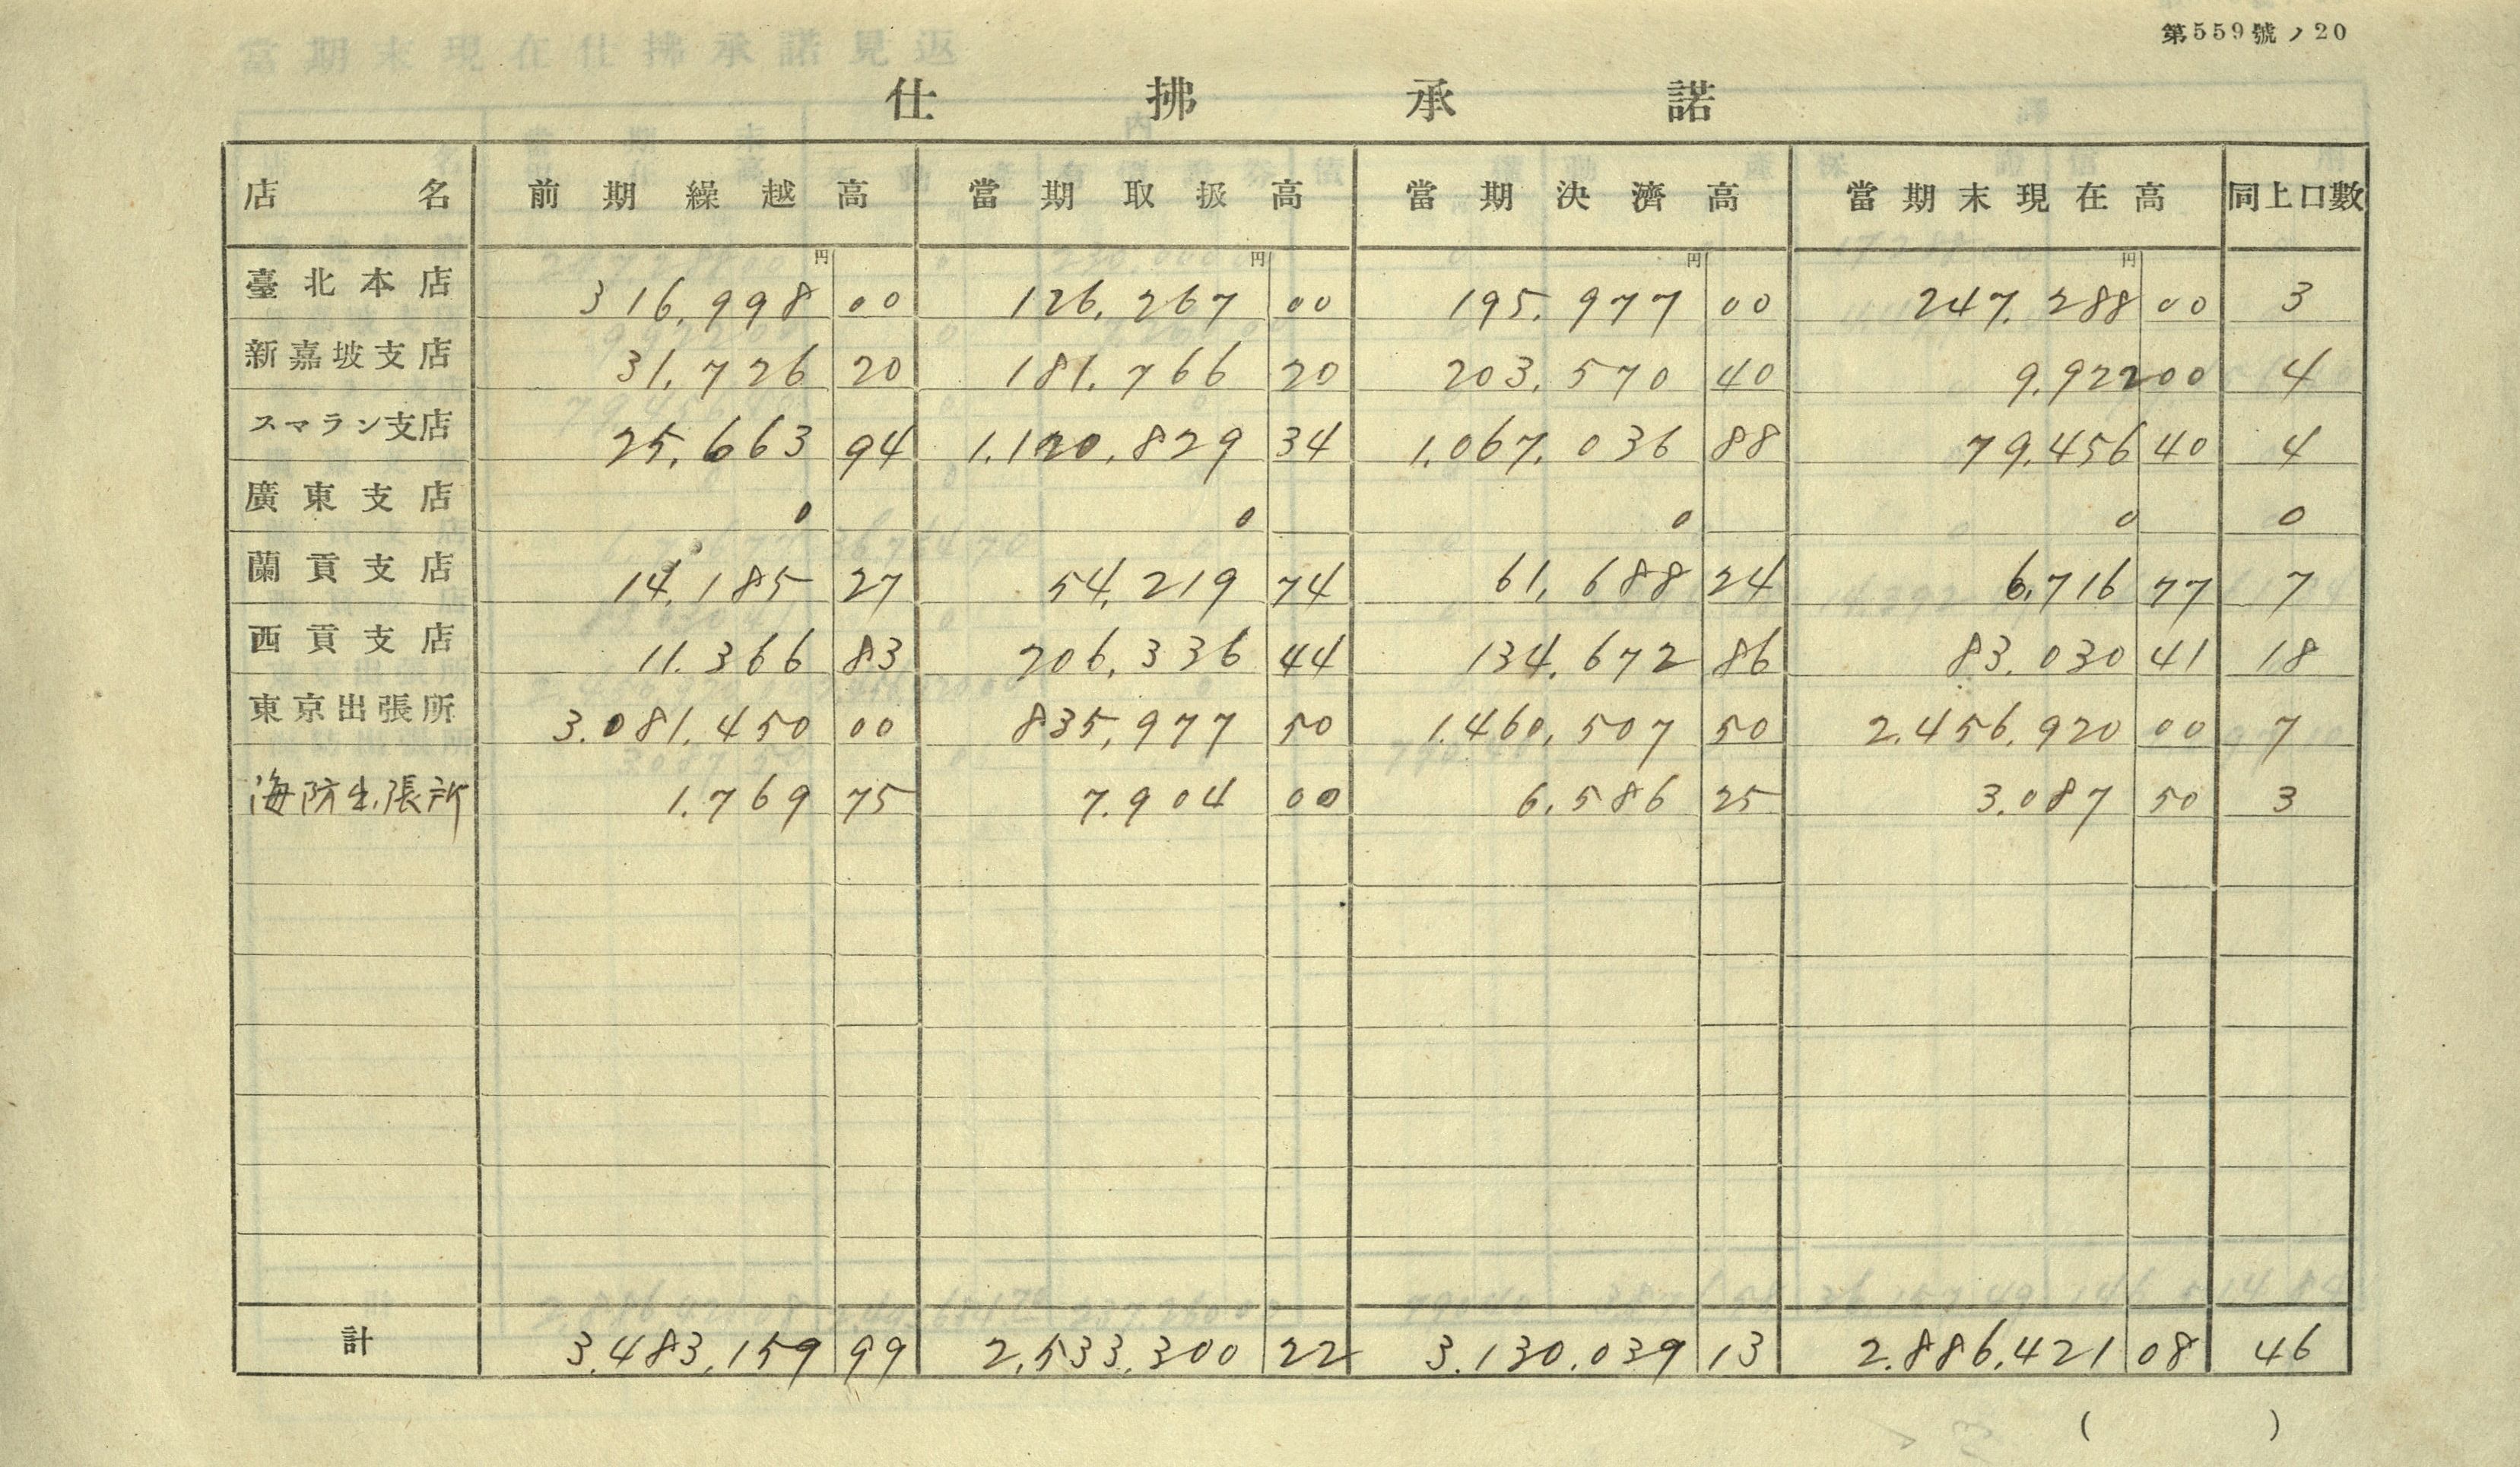 第559號ノ20
仕拂承諾
店名 前期繰越高 當期取扱高 當期決濟高 當期末現在高 同上口數
円 円 円 円
臺北本店 316,998 00 126,267 00 195,977 00 247,288 00 3
新嘉坡支店 31,726 20 181,766 20 203,570 40 9,922 00 4
スマラン支店 25,663 94 1,120,829 34 1,067,036 88 79,456 40 4
廣東支店 0 0 0 0 0
蘭貢支店 14,185 27 54,219 74 61,688 24 6,716 77 7
西貢支店 11,366 83 206,336 44 134,672 86 83,030 41 18
東京出張所 3,081,450 00 835,977 50 1,460,507 50 2,456,920 00 7
海防出張所 1,769 75 7,904 00 6,586 25 3,087 50 3
計 3,483,159 99 2,533,300 22 3,130,039 13 2,886,421 08 46
( )